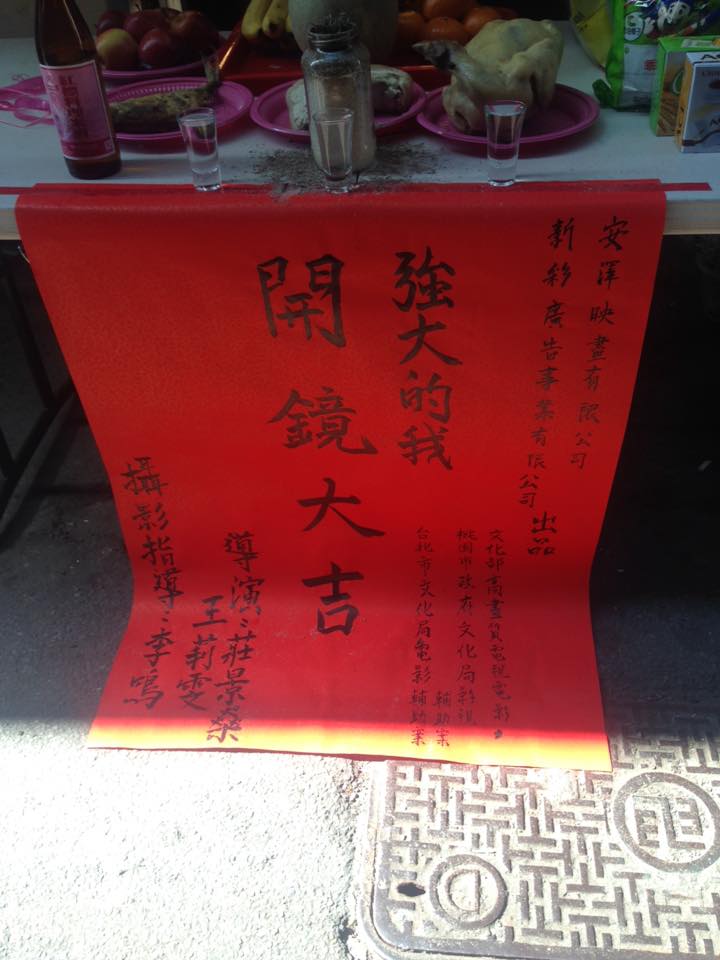 安澤映畫有限公司
新彩廣告事業有限公司
出品
文化部高畫質電視電影、
桃園市政府文化局影視
輔助案
台北市文化局電影輔助案
強大的我
開鏡大吉
導演：莊景燊
王莉雯
攝影指導：李鳴